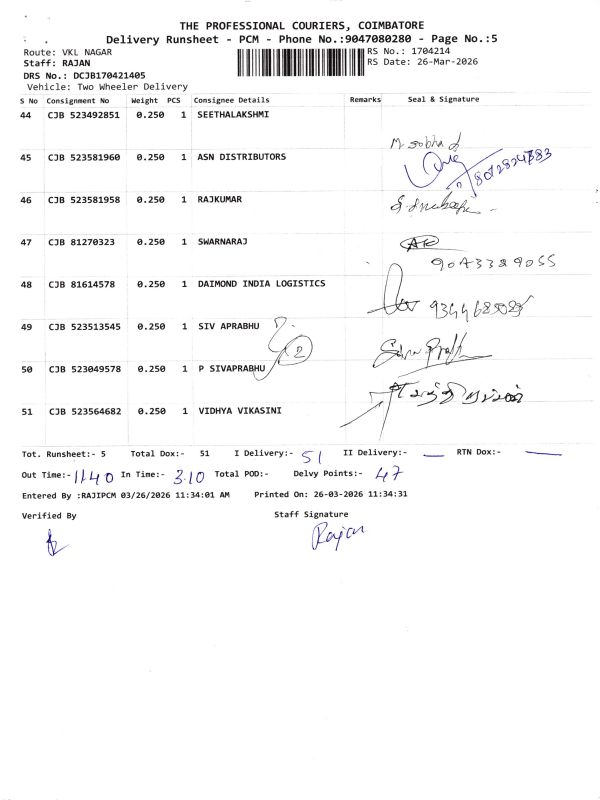 THE PROFESSIONAL COURIERS, COIMBATORE
Delivery Runsheet - PCM - Phone No.:9047080280 - Page No.:5
Route: VKL NAGAR RS No.: 1704214
Staff: RAJAN RS Date: 26-Mar-2026
DRS No.: DCJB170421405
Vehicle: Two Wheeler Delivery
S No Consignment No Weight PCS Consignee Details Remarks Seal & Signature
44 CJB 523492851 0.250 1 SEETHALAKSHMI
M. sobha
45 CJB 523581960 0.250 1 ASN DISTRIBUTORS
46 CJB 523581958 0.250 1 RAJKUMAR
47 CJB 81270323 0.250 1 SWARNARAJ
9043389055
48 CJB 81614578 0.250 1 DAIMOND INDIA LOGISTICS
49 CJB 523513545 0.250 1 SIV APRABHU
2
50 CJB 523049578 0.250 1 P SIVAPRABHU
51 CJB 523564682 0.250 1 VIDHYA VIKASINI
Tot. Runsheet:- 5 Total Dox:- 51 I Delivery:- 51 II Delivery:- — RTN Dox:- —
Out Time:- 1140 In Time:- 3.10 Total POD:- Delvy Points:- 47
Entered By :RAJIPCM 03/26/2026 11:34:01 AM Printed On: 26-03-2026 11:34:31
Verified By Staff Signature
Rajan